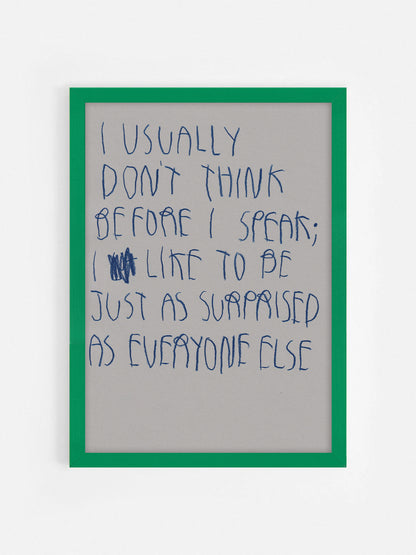 I USUALLY
DON'T THINK
BEFORE I SPEAK;
I LIKE TO BE
JUST AS SURPRISED
AS EVERYONE ELSE